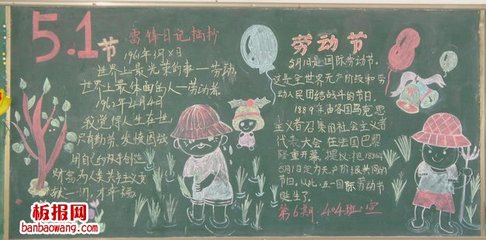 5.1节
雷锋日记摘抄
1961年3月X日
世界上最光荣的事—劳动
世界上最体面的人—劳动者
1962年4月4日
我觉得人生在世
只有勤劳,发愤图强
用自己的双手创造
财富,为人类
劳动节
5月1日是国际劳动节,
这是全世界无产阶级和劳
动人民团结战斗的节日。
1889年由各国马克思
主义者召集的社会主义者
代表大会在法国巴黎
隆重开幕,
5月1日定为无产阶级共同的
节日。从此,这一国际劳动节
诞生了。
第6期
板报网
www.banbaowang.com